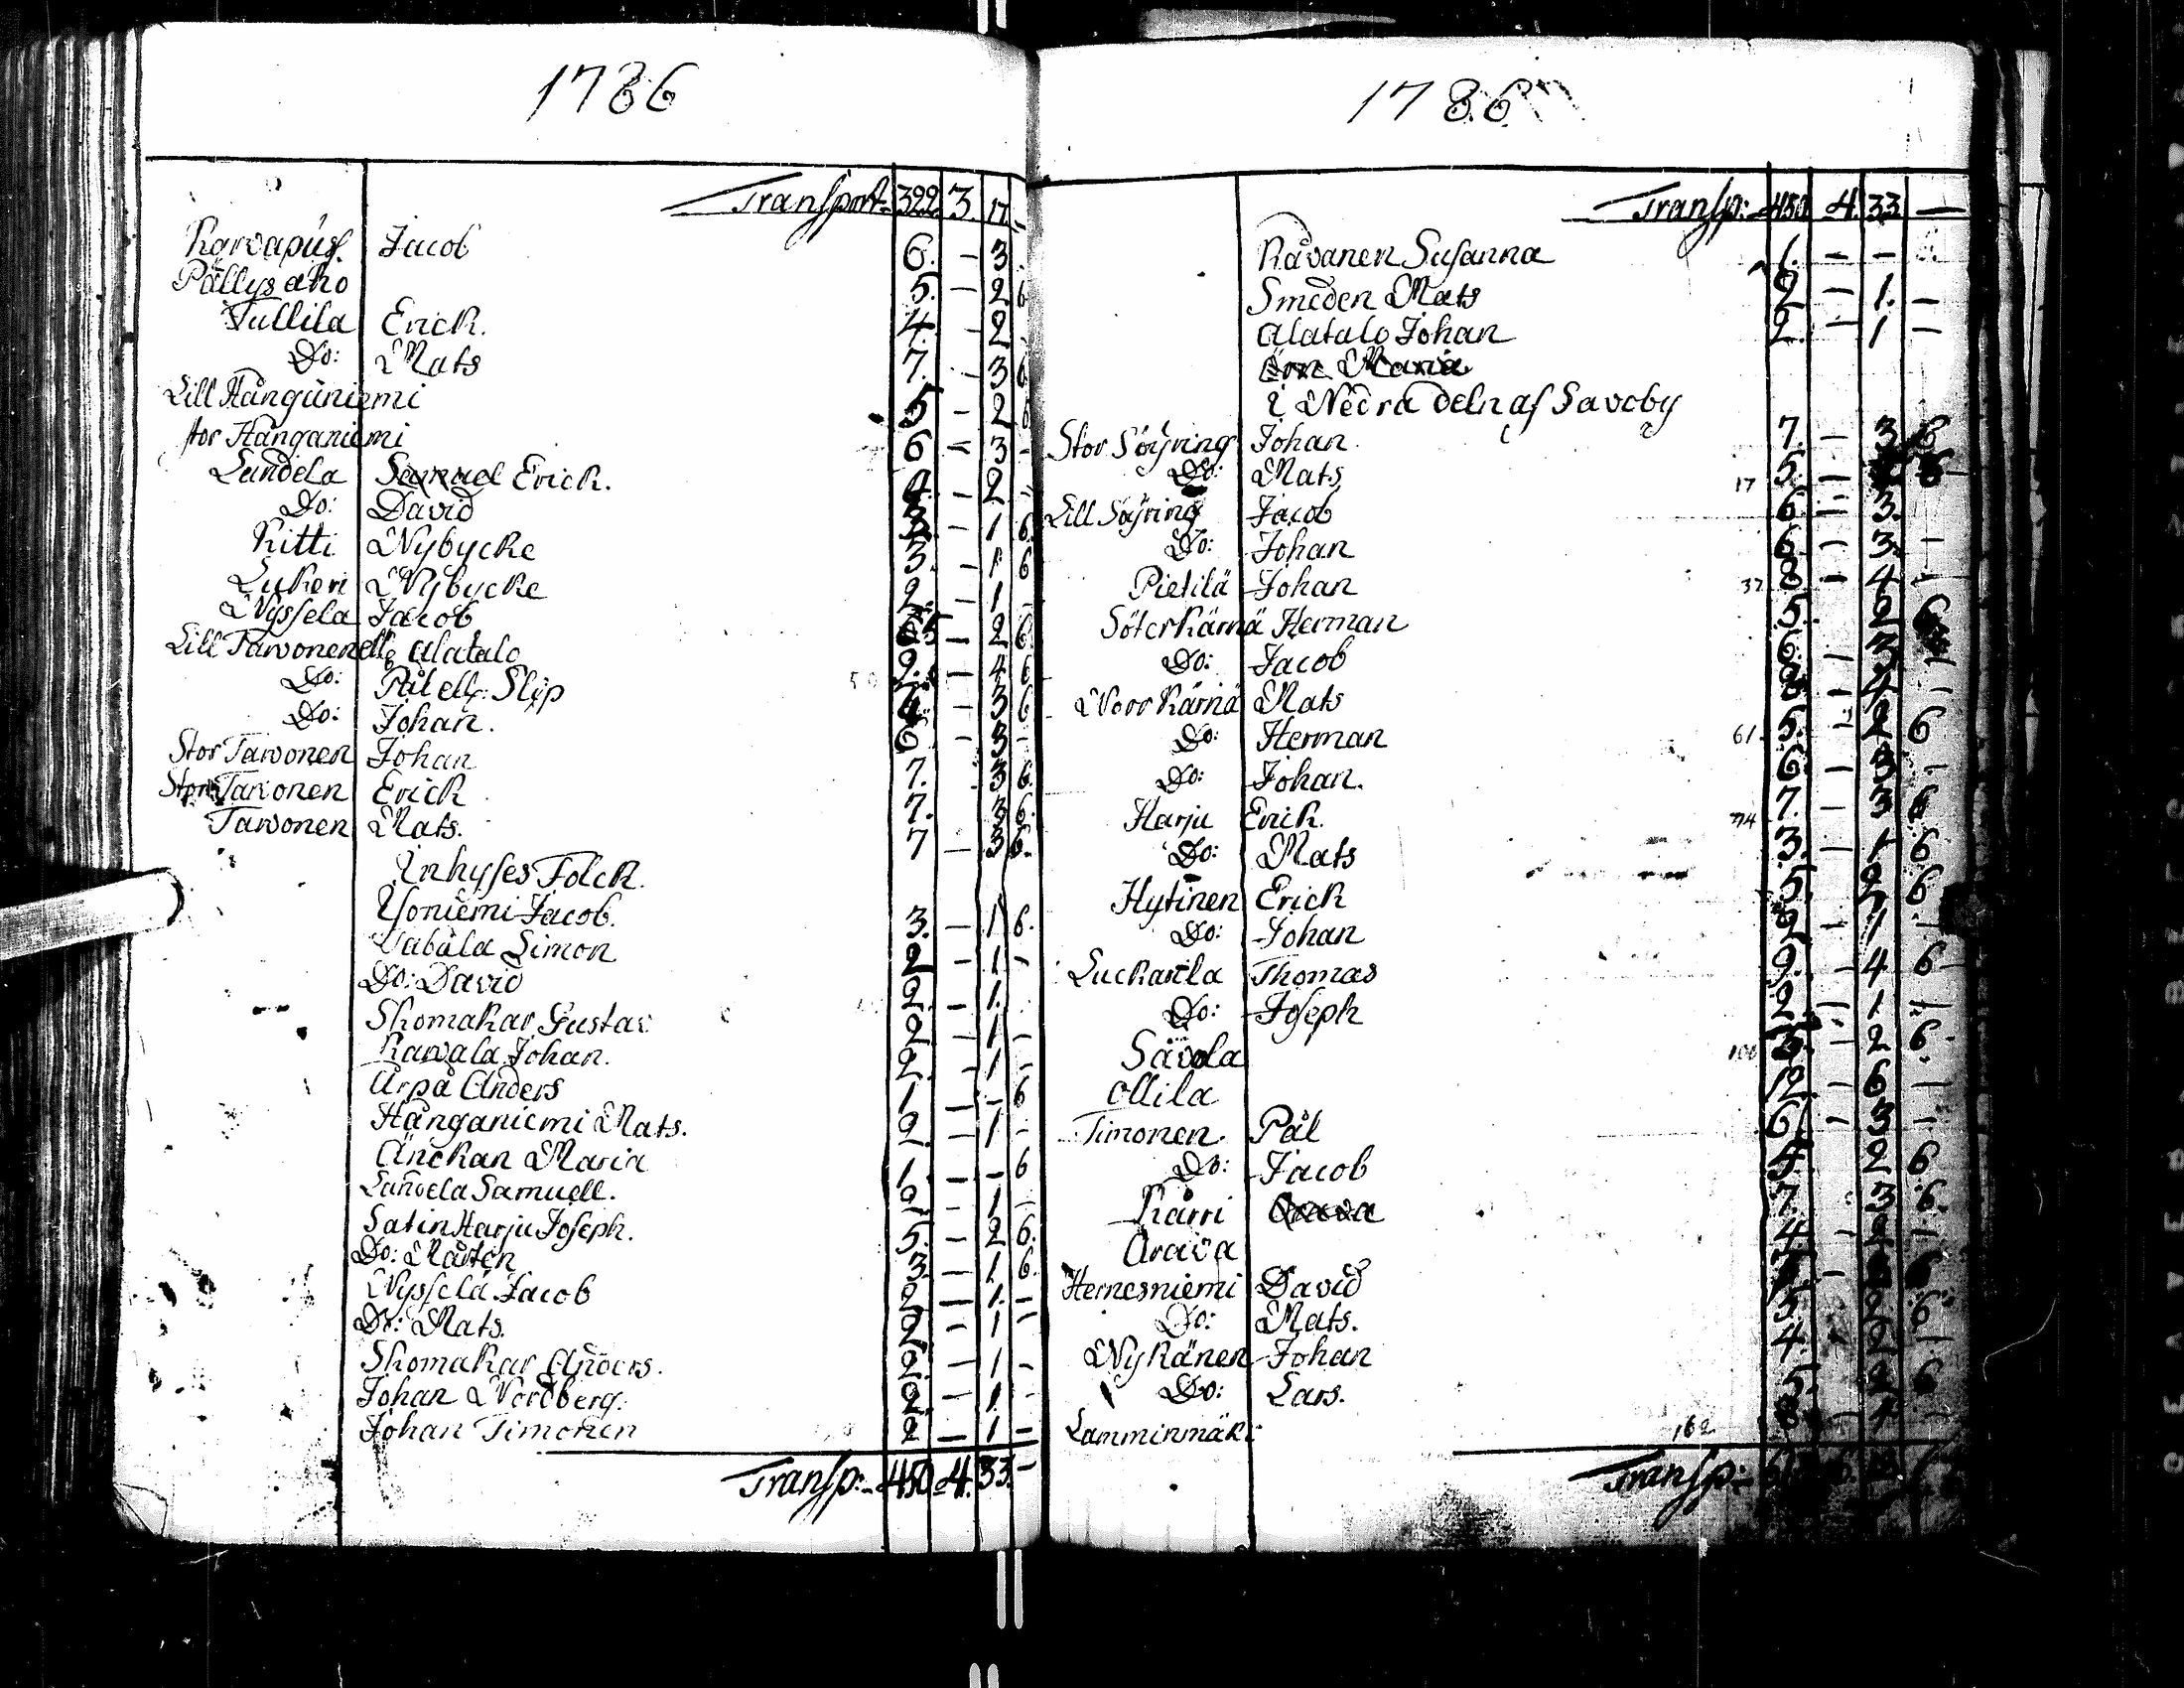 1786
Transport 322. 3. 17. –
Karvapús. Jacob 6. – 3.
Pällys aho 5. – 2 6
Tullila Erick. 4. – 2.
Do: Mats 7. – 3 6
Lill Hånganiemi 5 – 2 6
stor Hånganiemi 6 – 3 –
Landela Samuel Erick. 4. – 2 –
Do: David 3 – 1 6.
Kitti Nybycke 3. – 1 6
Lukeri Nybycke 2. – 1 –
Nyssela Jacob 5 – 2 6.
Lill Tarvonen Alatalo 9. – 4 6
Do: Pål ell: Slip – 3 6
Do: Johan. 6 – 3 –
Stor Tarvonen Johan 7. 3 6.
Stor Tarvonen Erick 7. 3 6.
Tarvonen Mats. 7 – 3 6.
Inhyses Folck.
Isoniemi Jacob. 3. – 1 6.
Vabåla Simon 2 – 1. –
Do: David 2. – 1.
Skomakar Gustav 2 – 1 –
Karvala Johan. 2. – 1 –
Arpå Anders 1 – – 6
Hånganiemi Mats. 2. – 1 –
Änckan Maria 1. – – 6
Landela Samuell. 2 – 1 –
Satin Harju Joseph. 5. – 2 6.
Do: Mårten 3. – 1 6.
Nyssela Jacob 2 – 1. –
Do: Mats. 2 – 1 –
Skomakar Anders. 2 – 1 –
Johan Nordberg. 2. – 1.
Johan Timonen 2 – 1 –
Transp: 450. 4. 33. –
1786
Transp: 450. 4. 33. –
Råvanen Susanna 1. – –
Smeden Mats 2 – 1. –
Alatalo Johan 2. – 1 –
Maria
i Nedra deln af Savoby
Stor Söyring Johan. 7. – 3. 6
Do: Mats, 17 5. –
Lill Söyring Jacob 6 – 3.
Do: Johan 6. – 3. –
Pietilä Johan 32 8 – 4 –
Söterkärnä Herman 5. 2 6
Do: Jacob 6. – 3 –
Norr Kärnä Mats 8 – 4 –
Do: Herman 61. 5. – 2 6
Do: Johan. 6 – 3 –
Harju Erick. 74 7. – 3 6
Do: Mats 3. – 1 6
Hytinen Erick 5. 2 6
Do: Johan 2 – 1 –
Luckarila Thomas 9. – 4 6
Do: Joseph 2 – 1 –
Sävola 100 5. – 2 6.
Ollila 12 – 6 –
Timonen. Pål 6 – 3 –
Do: Jacob 5. 2 6
Kärri Arava 7. 3 6.
Arava 4.
Hernesniemi David
Do: Mats. 5. 2 6
Nykänen Johan 4. 2
Do: Lars. 5. 2 6
Lamminmäki 162 8 – 4
Transp: